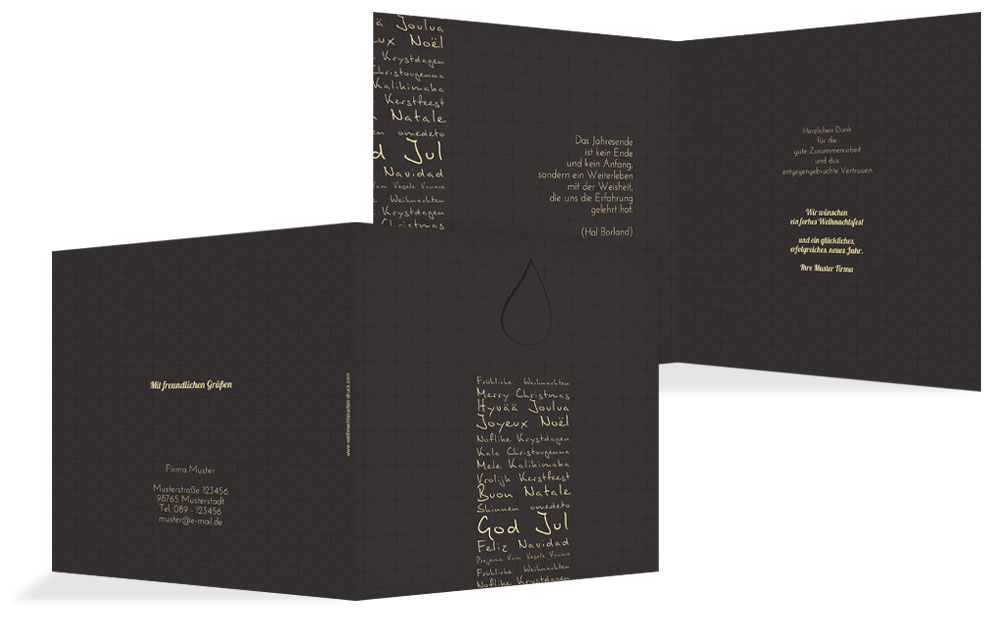 ä Joulua
ux Noël
Krystdagen
Christougenna
Kalikimaka
Kerstfeest
Natale
en omedeto
d Jul
Navidad
Vam Vesele Vanoce
Weihnachten
Krystdagen
Christougenna
Das Jahresende
ist kein Ende
und kein Anfang,
sondern ein Weiterleben
mit der Weisheit,
die uns die Erfahrung
gelehrt hat.
(Hal Borland)
Herzlichen Dank
für die
gute Zusammenarbeit
und das
entgegengebrachte Vertrauen.
Wir wünschen
ein forhes Weihnachtsfest
und ein glückliches,
erfolgreiches neues Jahr.
Ihre Muster Firma
Mit freundlichen Grüßen
Firma Muster
Musterstraße 123456
98765 Musterstadt
Tel: 089 - 123456
muster@e-mail.de
www.weihnachtskarten-druck.com
Fröhliche Weihnachten
Merry Christmas
Hyvää Joulua
Joyeux Noël
Noflike Krystdagen
Kala Christougenna
Mele Kalikimaka
Vrolijk Kerstfeest
Buon Natale
Shinnen omedeto
God Jul
Feliz Navidad
Prejeme Vam Vesele Vanoce
Fröhliche Weihnachten
Noflike Krystdagen